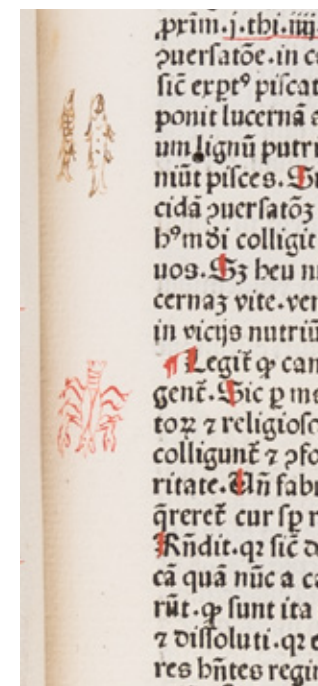 prim̄.j.thi.iiij
ꝯuerſatōe.in c
ſic̄ exptꝰ piſcat
ponit lucernā
um lignū putri
niūt piſces. S
cidā ꝯuerſatōꝫ
hꝰmōi colligit
uos. Sꝫ heu n
cernaꝫ vite.ver
in vicijs nutriū
¶ Legit̄ ꝙ can
gent̄. Sic ꝑ me
toꝝ ⁊ religioſo
colligunt̄ ⁊ ꝓfo
ritate. Uñ fabr
q̄reret̄ cur ſꝑ r
Rñdit.qꝛ ſic̄ d
cā quā nūc a ca
rūt.ꝙ ſunt ita
⁊ diſſoluti.qꝛ e
res hñtes regi